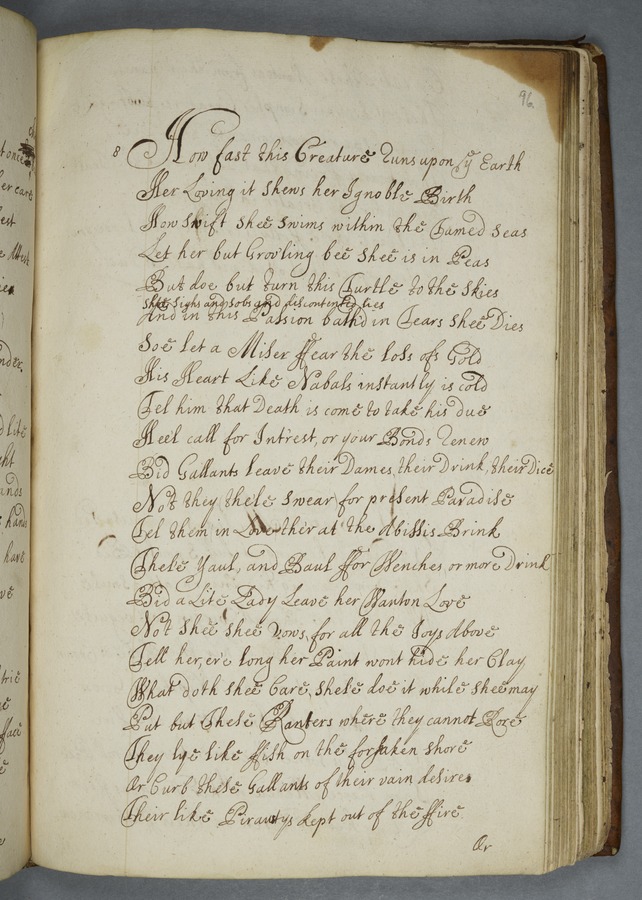 96
8 How fast this Creature runs upon ye Earth
Her Loving it shews her Ignoble Birth
How swift shee swims within the Tamed Seas
Let her but Grovling bee shee is in Peas
But doe but turn this Turtle to the skies
shee sighs and sobs and discontented lies
And in this Passion bath'd in Tears shee Dies
Soe let a Miser ffear the loss of Gold
His Heart Like Nabals instantly is cold
Tel him that Death is come to take his due
Hee'l call for Int'rest, or your Bonds renew
Bid Gallants leave their Dames, their Drink, their Dice
Not they thele swear for present Paradise
Tel them in Love ther at the Abissis Brink
Thele Yaul, and Baul ffor Wenches or more Drink
Bid a Lite Lady Leave her Wanton Love
Not shee shee vows, for all the Joys Above
Tell her, ere long her Paint wont hide her Clay
What doth shee Care, shele doe it while shee may
Put but these Ranters where they cannot Rore
They lye like ffish on the forsaken shore
Or Curb these Gallants of their vain desires
Their like Pirautys kept out of the ffire
Or